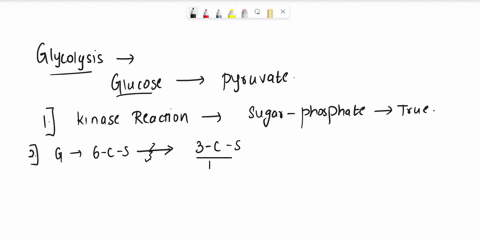 Glycolysis →
Glucose → pyruvate.
1.] Kinase Reaction → Sugar-phosphate → True.
G → 6-C-S → 3-C-S
1